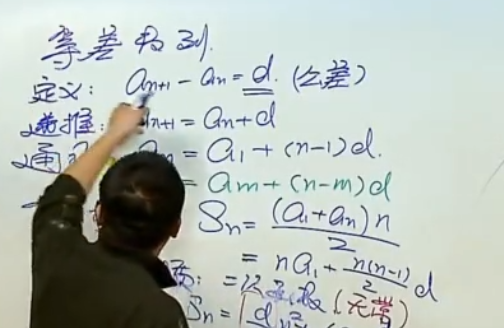 等差数列.
定义: aₙ₊₁ - aₙ = d. (公差)
递推: aₙ₊₁ = aₙ + d
通 aₙ = a₁ + (n-1)d.
= aₘ + (n-m)d
Sₙ = (a₁+aₙ)n / 2
= na₁ + n(n-1)/2 d
: = 次函数 (无常)
Sₙ = d n²